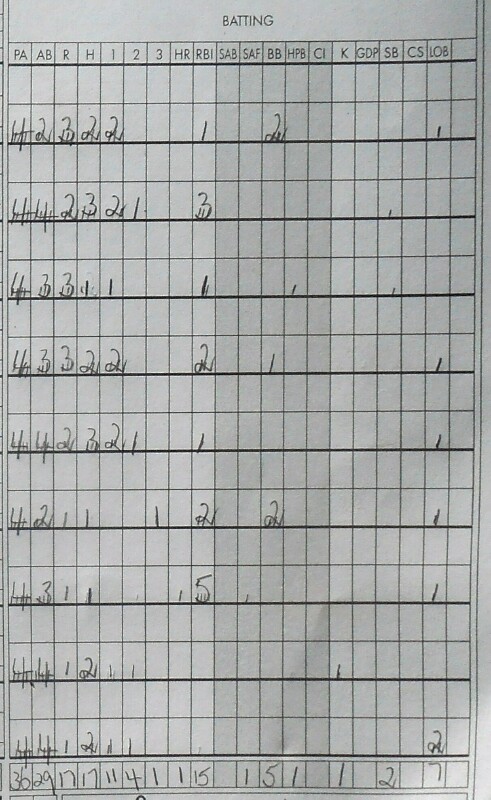 BATTING
PA AB R H 1 2 3 HR RBI SAB SAF BB HPB CI K GDP SB CS LOB
4 2 3 2 2 1 2 1
4 4 2 3 2 1 3 1
4 3 3 1 1 1 1 1
4 3 3 2 2 2 1 1
4 4 2 3 2 1 1 1
4 2 1 1 1 2 2 1
4 3 1 1 1 5 1 1
4 4 1 2 1 1 1
4 4 1 2 1 1 2
36 29 17 17 11 4 1 1 15 1 5 1 1 2 7